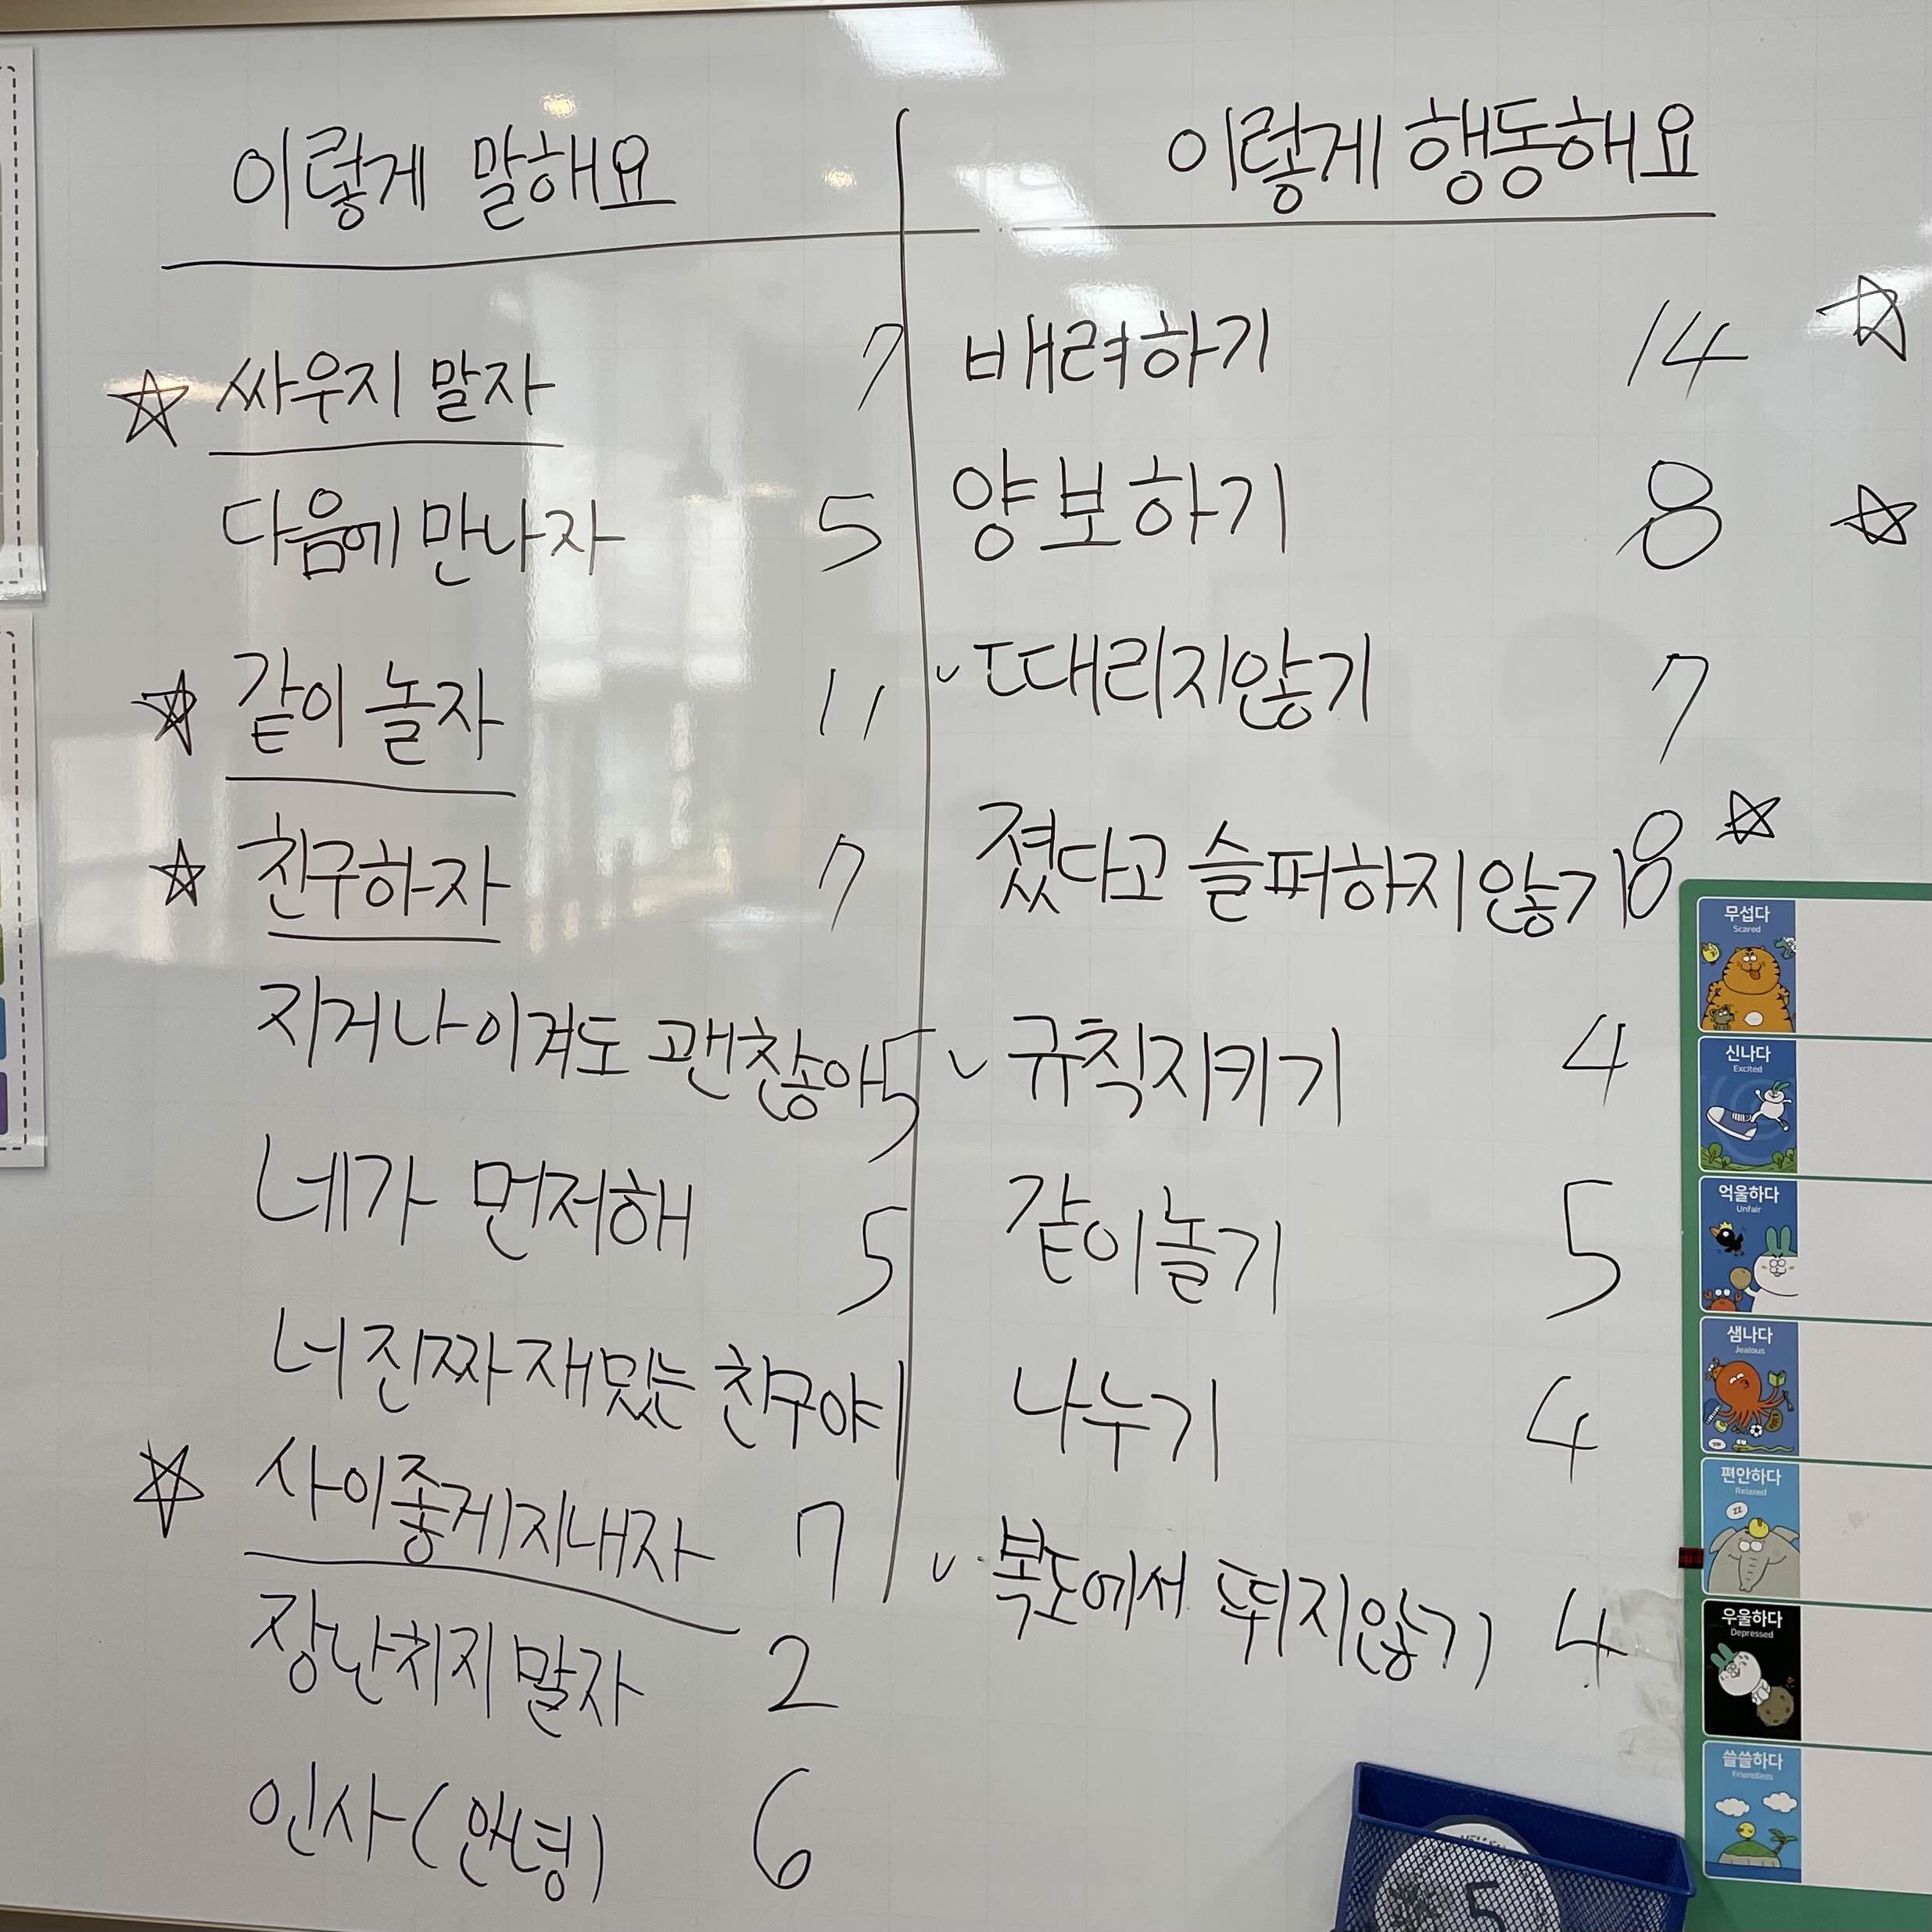 이렇게 말해요
☆ 싸우지 말자 7
다음에 만나자 5
☆ 같이 놀자 11
☆ 친구하자 7
지거나 이겨도 괜찮아 5
네가 먼저해 5
너 진짜 재밌는 친구야 1
☆ 사이좋게지내자 7
장난치지 말자 2
인사(안녕) 6
이렇게 행동해요
배려하기 14 ☆
양보하기 8 ☆
✓ 때리지않기 7
졌다고 슬퍼하지 않기 8 ☆
✓ 규칙지키기 4
같이놀기 5
나누기 4
✓ 복도에서 뛰지않기 4
무섭다
Scared
신나다
Excited
억울하다
Unfair
샘나다
Jealous
편안하다
Relaxed
우울하다
Depressed
쓸쓸하다
Friendless
5